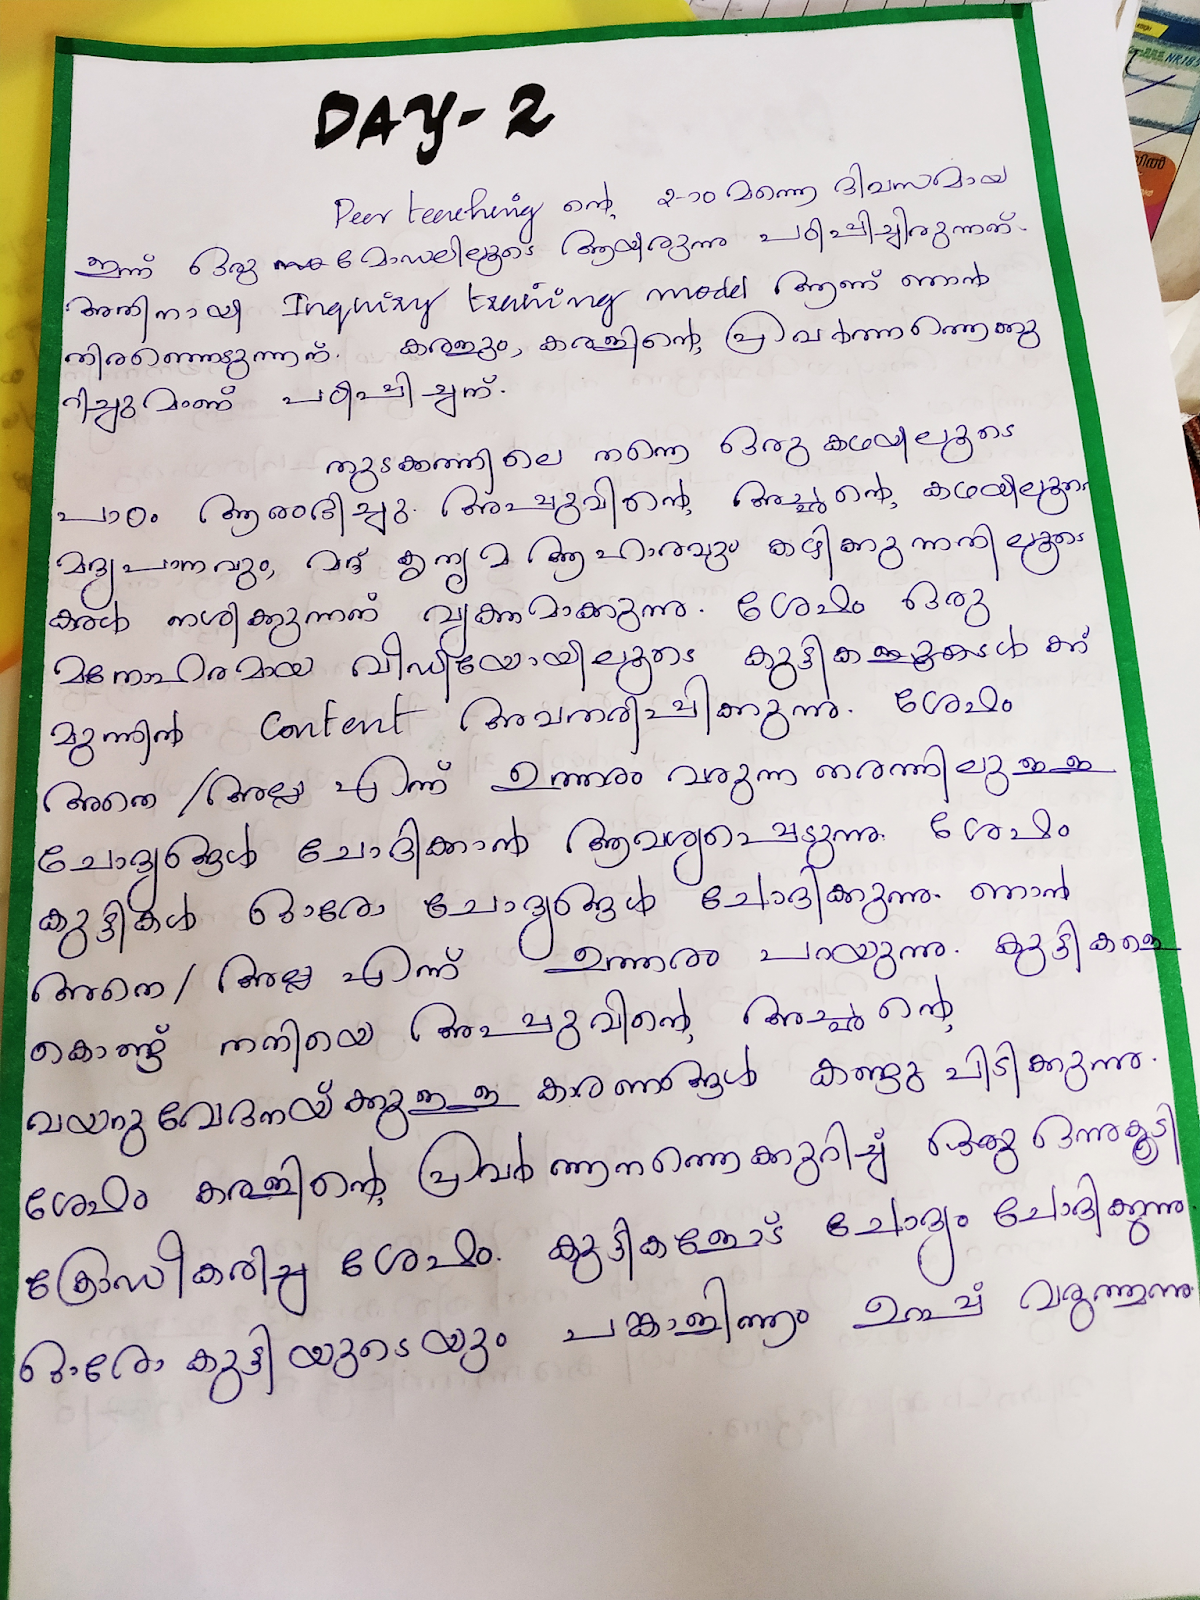 DAY-2
Peer teaching ന്റെ, 2-ാo മത്തെ ദിവസമായ
ഇന്ന് ഒരു മോഡലിലൂടെ ആയിരുന്നു പഠിപ്പിച്ചിരുന്നത്.
അതിനായി Inquiry training model ആണ് ഞാൻ
തിരഞ്ഞെടുത്തത്. കരളും, കരളിന്റെ, പ്രവർത്തനത്തെക്കു
റിച്ചുമാണ് പഠിപ്പിച്ചത്.
തുടക്കത്തിലെ തന്നെ ഒരു കഥയിലൂടെ
പാഠം ആരംഭിച്ചു. അപ്പുവിന്റെ, അച്ഛന്റെ, കഥയിലൂടെ
മദ്യപാനവും, മദ്യ കൃത്യമ ആഹാരവും കഴിക്കുന്നതിലൂടെ
കരൾ നശിക്കുന്നത് വ്യക്തമാക്കുന്നു. ശേഷം ഒരു
മനോഹരമായ വീഡിയോയിലൂടെ കുട്ടികൾക്ക്
മുന്നിൽ Content അവതരിപ്പിക്കുന്നു. ശേഷം
അതെ / അല്ല എന്ന് ഉത്തരം വരുന്ന തരത്തിലുള്ള
ചോദ്യങ്ങൾ ചോദിക്കാൻ ആവശ്യപ്പെടുന്നു. ശേഷം
കുട്ടികൾ ഓരോ ചോദ്യങ്ങൾ ചോദിക്കുന്നു. ഞാൻ
അതെ / അല്ല എന്ന് ഉത്തരം പറയുന്നു. കുട്ടികളെ
കൊണ്ട് തനിയെ അപ്പുവിന്റെ, അച്ഛന്റെ,
വയറുവേദനയ്ക്കുള്ള കാരണങ്ങൾ കണ്ടുപിടിക്കുന്നു.
ശേഷം കരളിന്റെ, പ്രവർത്തനത്തെക്കുറിച്ച് ഒന്നുകൂടി
ക്രോഡീകരിച്ച ശേഷം. കുട്ടികളോട് ചോദ്യം ചോദിക്കുന്നു
ഓരോ കുട്ടിയുടെയും പങ്കാളിത്തം ഉറപ്പ് വരുത്തുന്നു